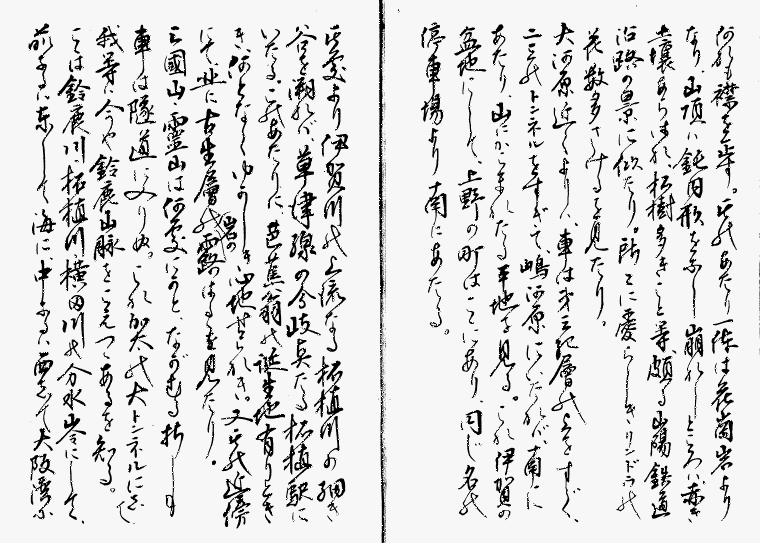 何れも襟を正す。其のあたり一体は花崗岩より
なり、山頂は鈍円形を示し崩れしところハ赤き
土壌あらはれ、松樹多きこと等、頗る山陽鉄道
沿路の景に似たり。所々に愛らしきリンドウの
花数多さけるを見たり。
大河原近くよりハ、車は第三紀層の上をすぐ、
二三のトンネルをすぎて、嶋河原にいたれバ、南に
あたり、山にかこまれたる平地を見る。これ伊賀の
盆地にして、上野の町はこゝにあり、同じ名の
停車場より南にあたる。
此處より伊賀川の上流なる柘植川の細き
谷を溯れバ、草津線の分岐点たる柘植駅に
いたる、このあたりに芭蕉翁の誕生地有りとき
き、何となくゆかしき心地せられき。又其の近傍
にて、北に古生層の岩の露はるを見たり。
三國山、靈山は何處ぞと、ながむる折しも
車は隧道に入りぬ。これ加太の大トンネルにして
我等は今や鈴鹿山脈をこえつゝあるを知る。
こは鈴鹿川、柘植川、横田川の分水山脊にして、
前者は東して海に、中なるハ西して大阪湾に